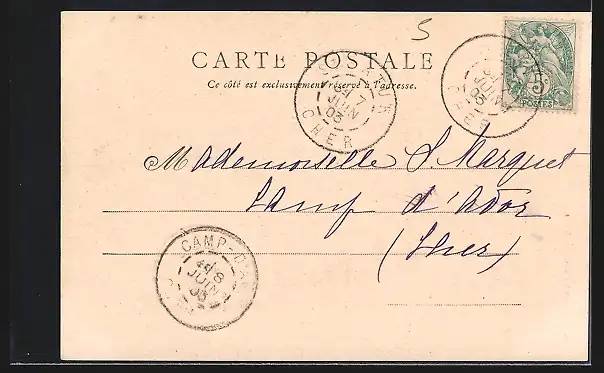 5
CARTE POSTALE
Ce côté est exclusivement réservé à l'adresse.
JUIN
03
CHER
JUIN
03
CHER
5
POSTES
Mademoiselle S. Marquet
Camp d'Avor
(Cher)
CAMP-D'A
8
JUIN
03